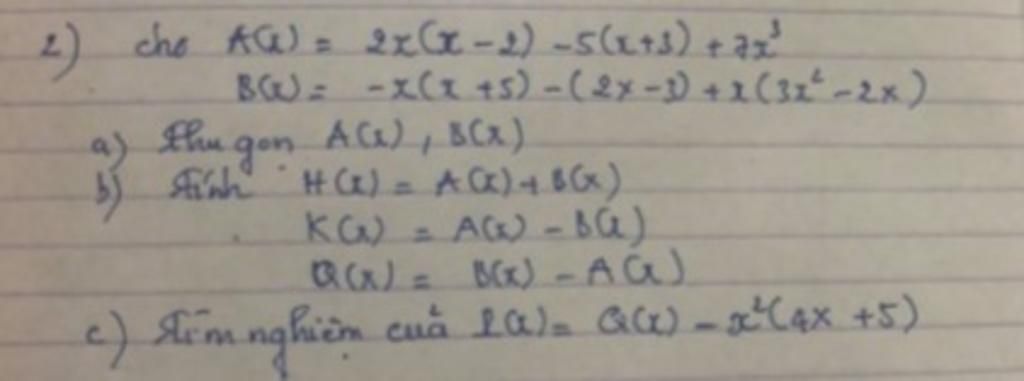 2) cho A(x) = 2x(x - 2) - 5(x+3) + 7x³
B(x) = -x(x + 5) - (2x - 3) + x(3x² - 2x)
a) Thu gọn A(x), B(x)
b) Tính H(x) = A(x) + B(x)
K(x) = A(x) - B(x)
Q(x) = B(x) - A(x)
c) Tìm nghiệm cuả P(x) = Q(x) - x²(4x + 5)